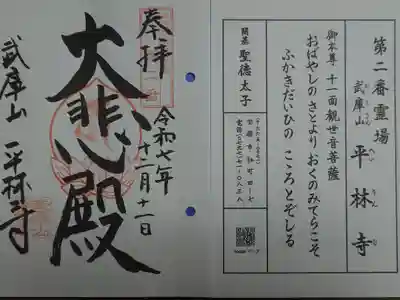 第二番霊場
武庫山
平林寺
へいりんじ
御本尊 十一面観世音菩薩
おばやしの さとより おくのみてらこそ
ふかきだいひの こころとぞしる
開基 聖徳太子
奉拝
大悲殿
令和七年
十二月十一日
武庫山 平林寺